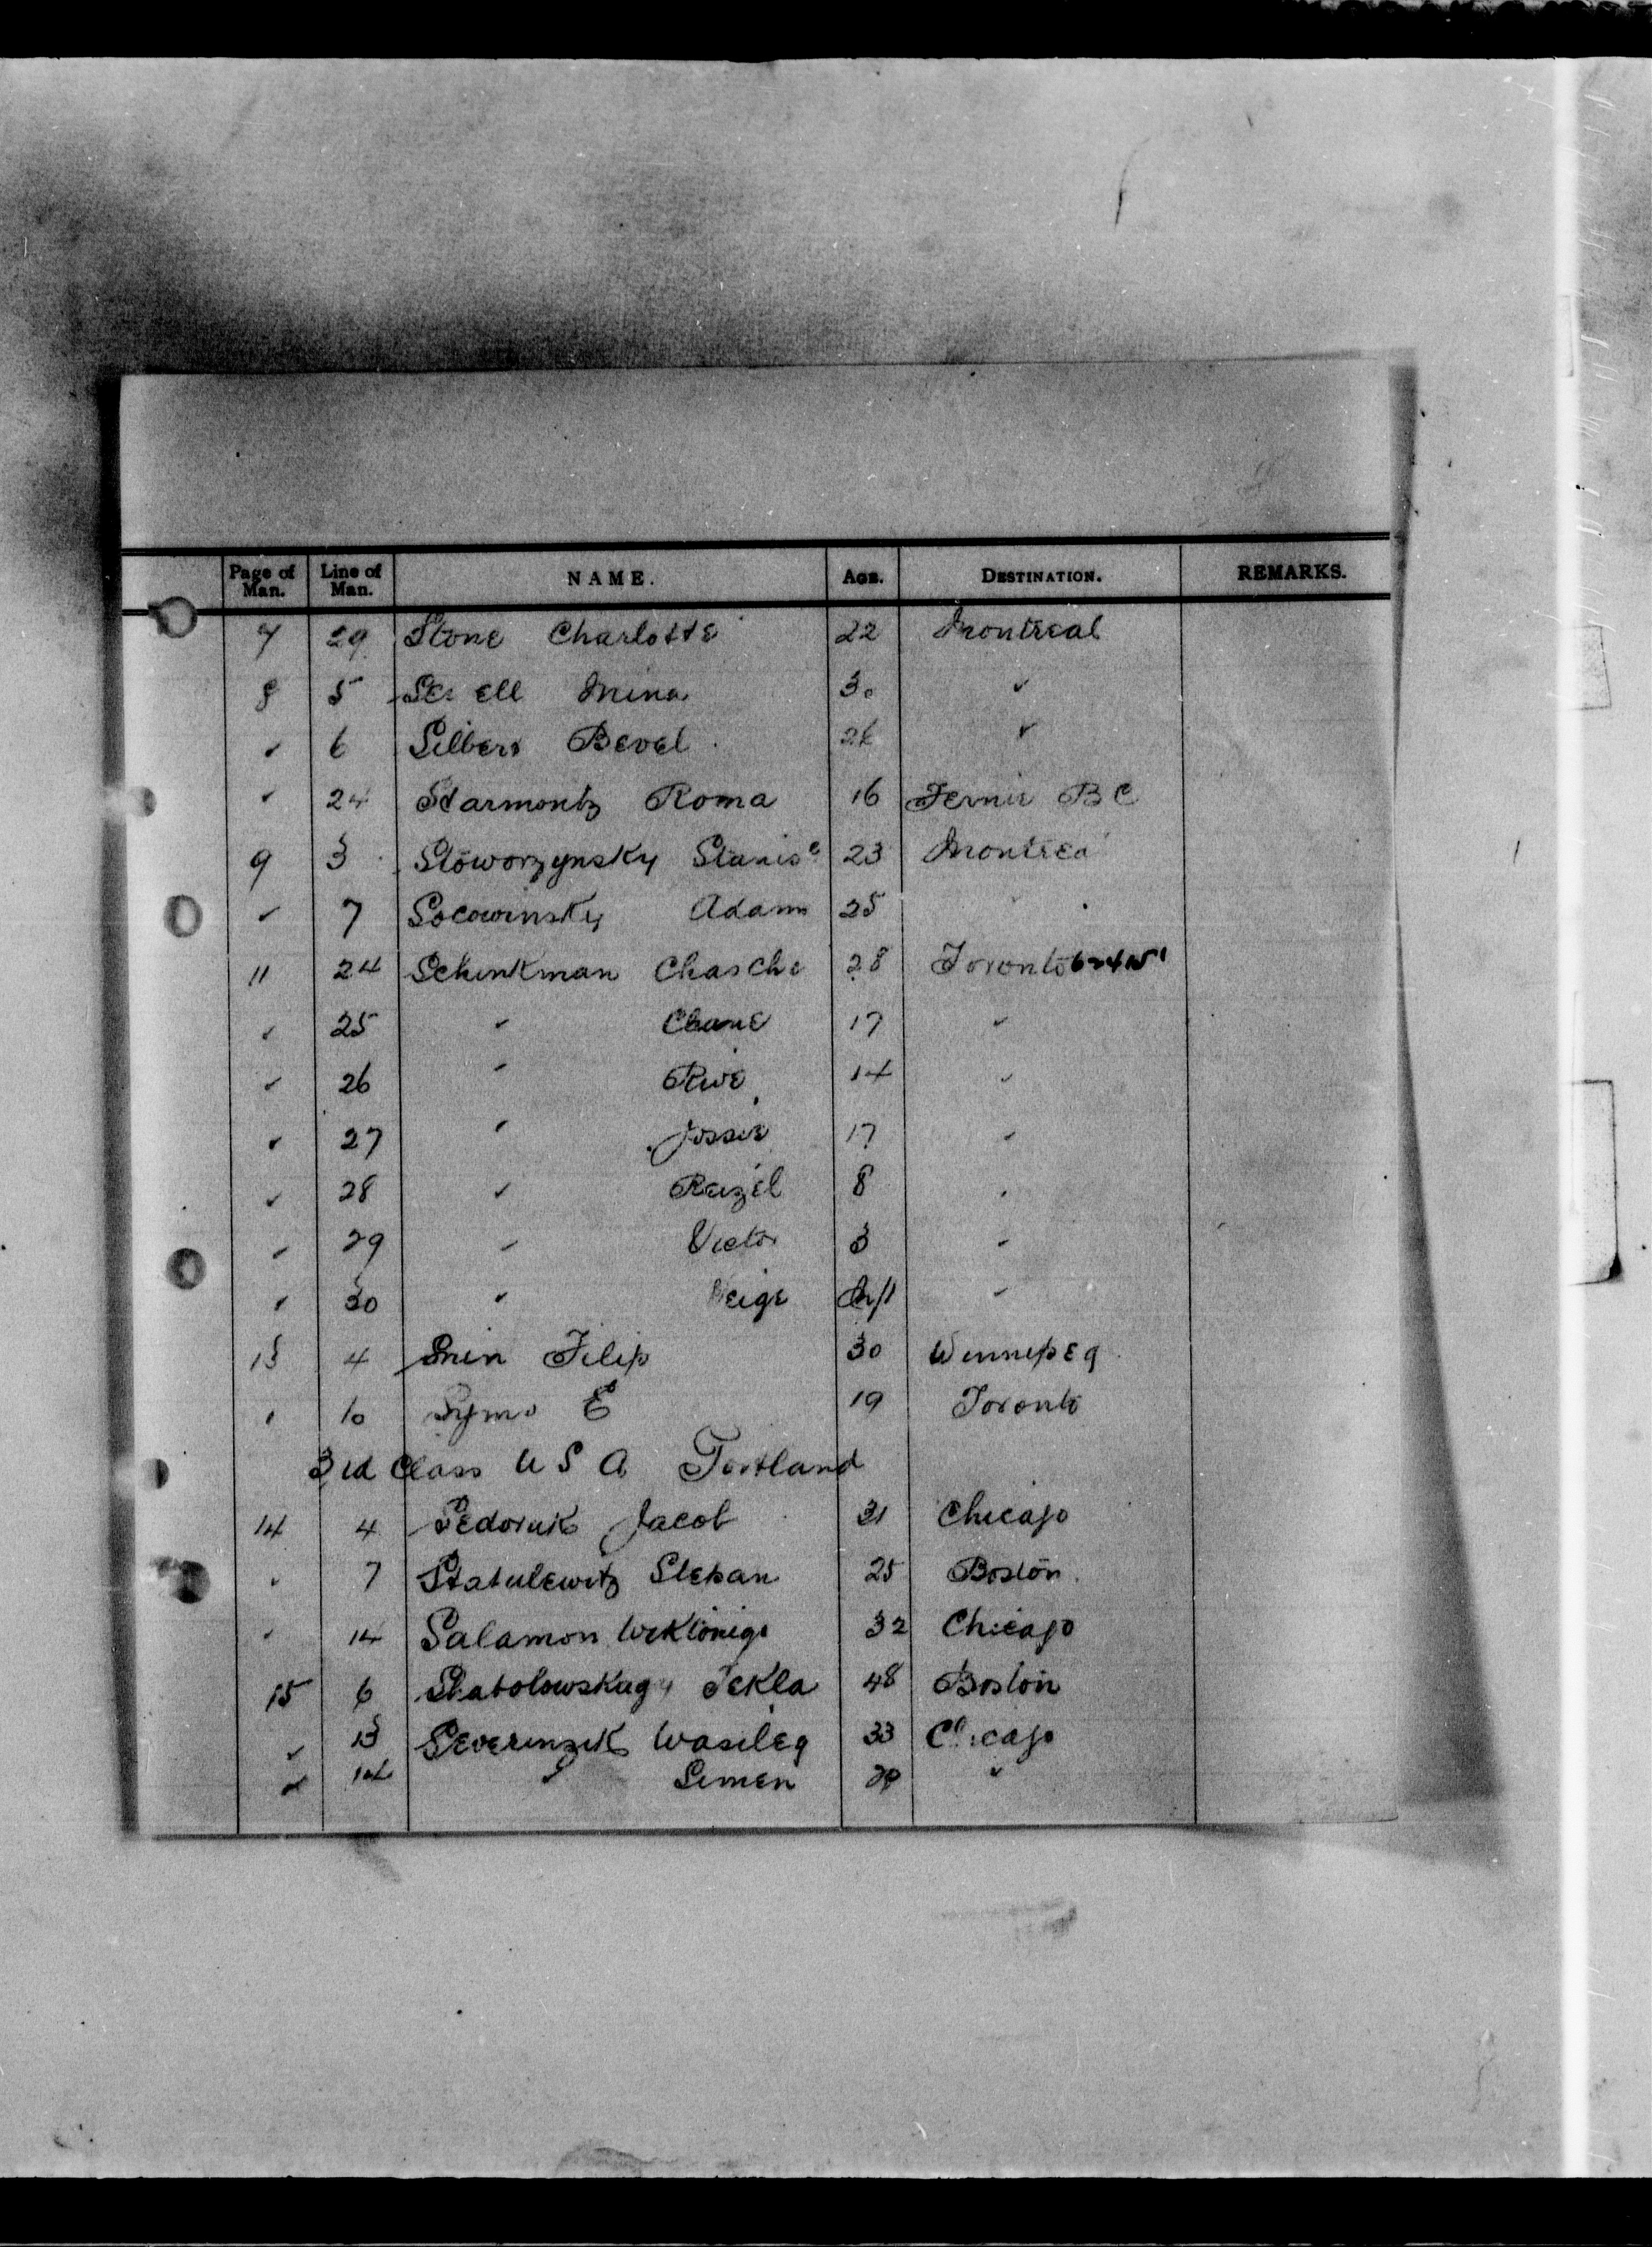 Page of Man. Line of Man. NAME. AGE. DESTINATION. REMARKS.
7 29 Stone Charlotte 22 Montreal
8 5 Mina 30 "
" 6 Silbers Bevel 26 "
" 24 Starmontz Roma 16 Fernie B C
9 3 Stoworzynsky Stanis 23 Montrea
" 7 Socowinsky Adam 25
11 24 Schinkman Chasche 28 Toronto
" 25 " Chane 17 "
" 26 " Riwe 14 "
" 27 " Jossie 17 "
" 28 " Reizel 8 "
" 29 " Victor 3 "
" 30 " Feige Inft "
13 4 Filip 30 Winnipeg
" 10 E 19 Toronto
3rd Class U S A Portland
14 4 Sedoruk Jacob 31 Chicago
" 7 Statulewitz Stepan 25 Boston
" 14 Salamon 32 Chicago
15 6 Tekla 48 Boston
" 13 Severinzik Wasileg 33 Chicago
" 14 " Semen 29 "